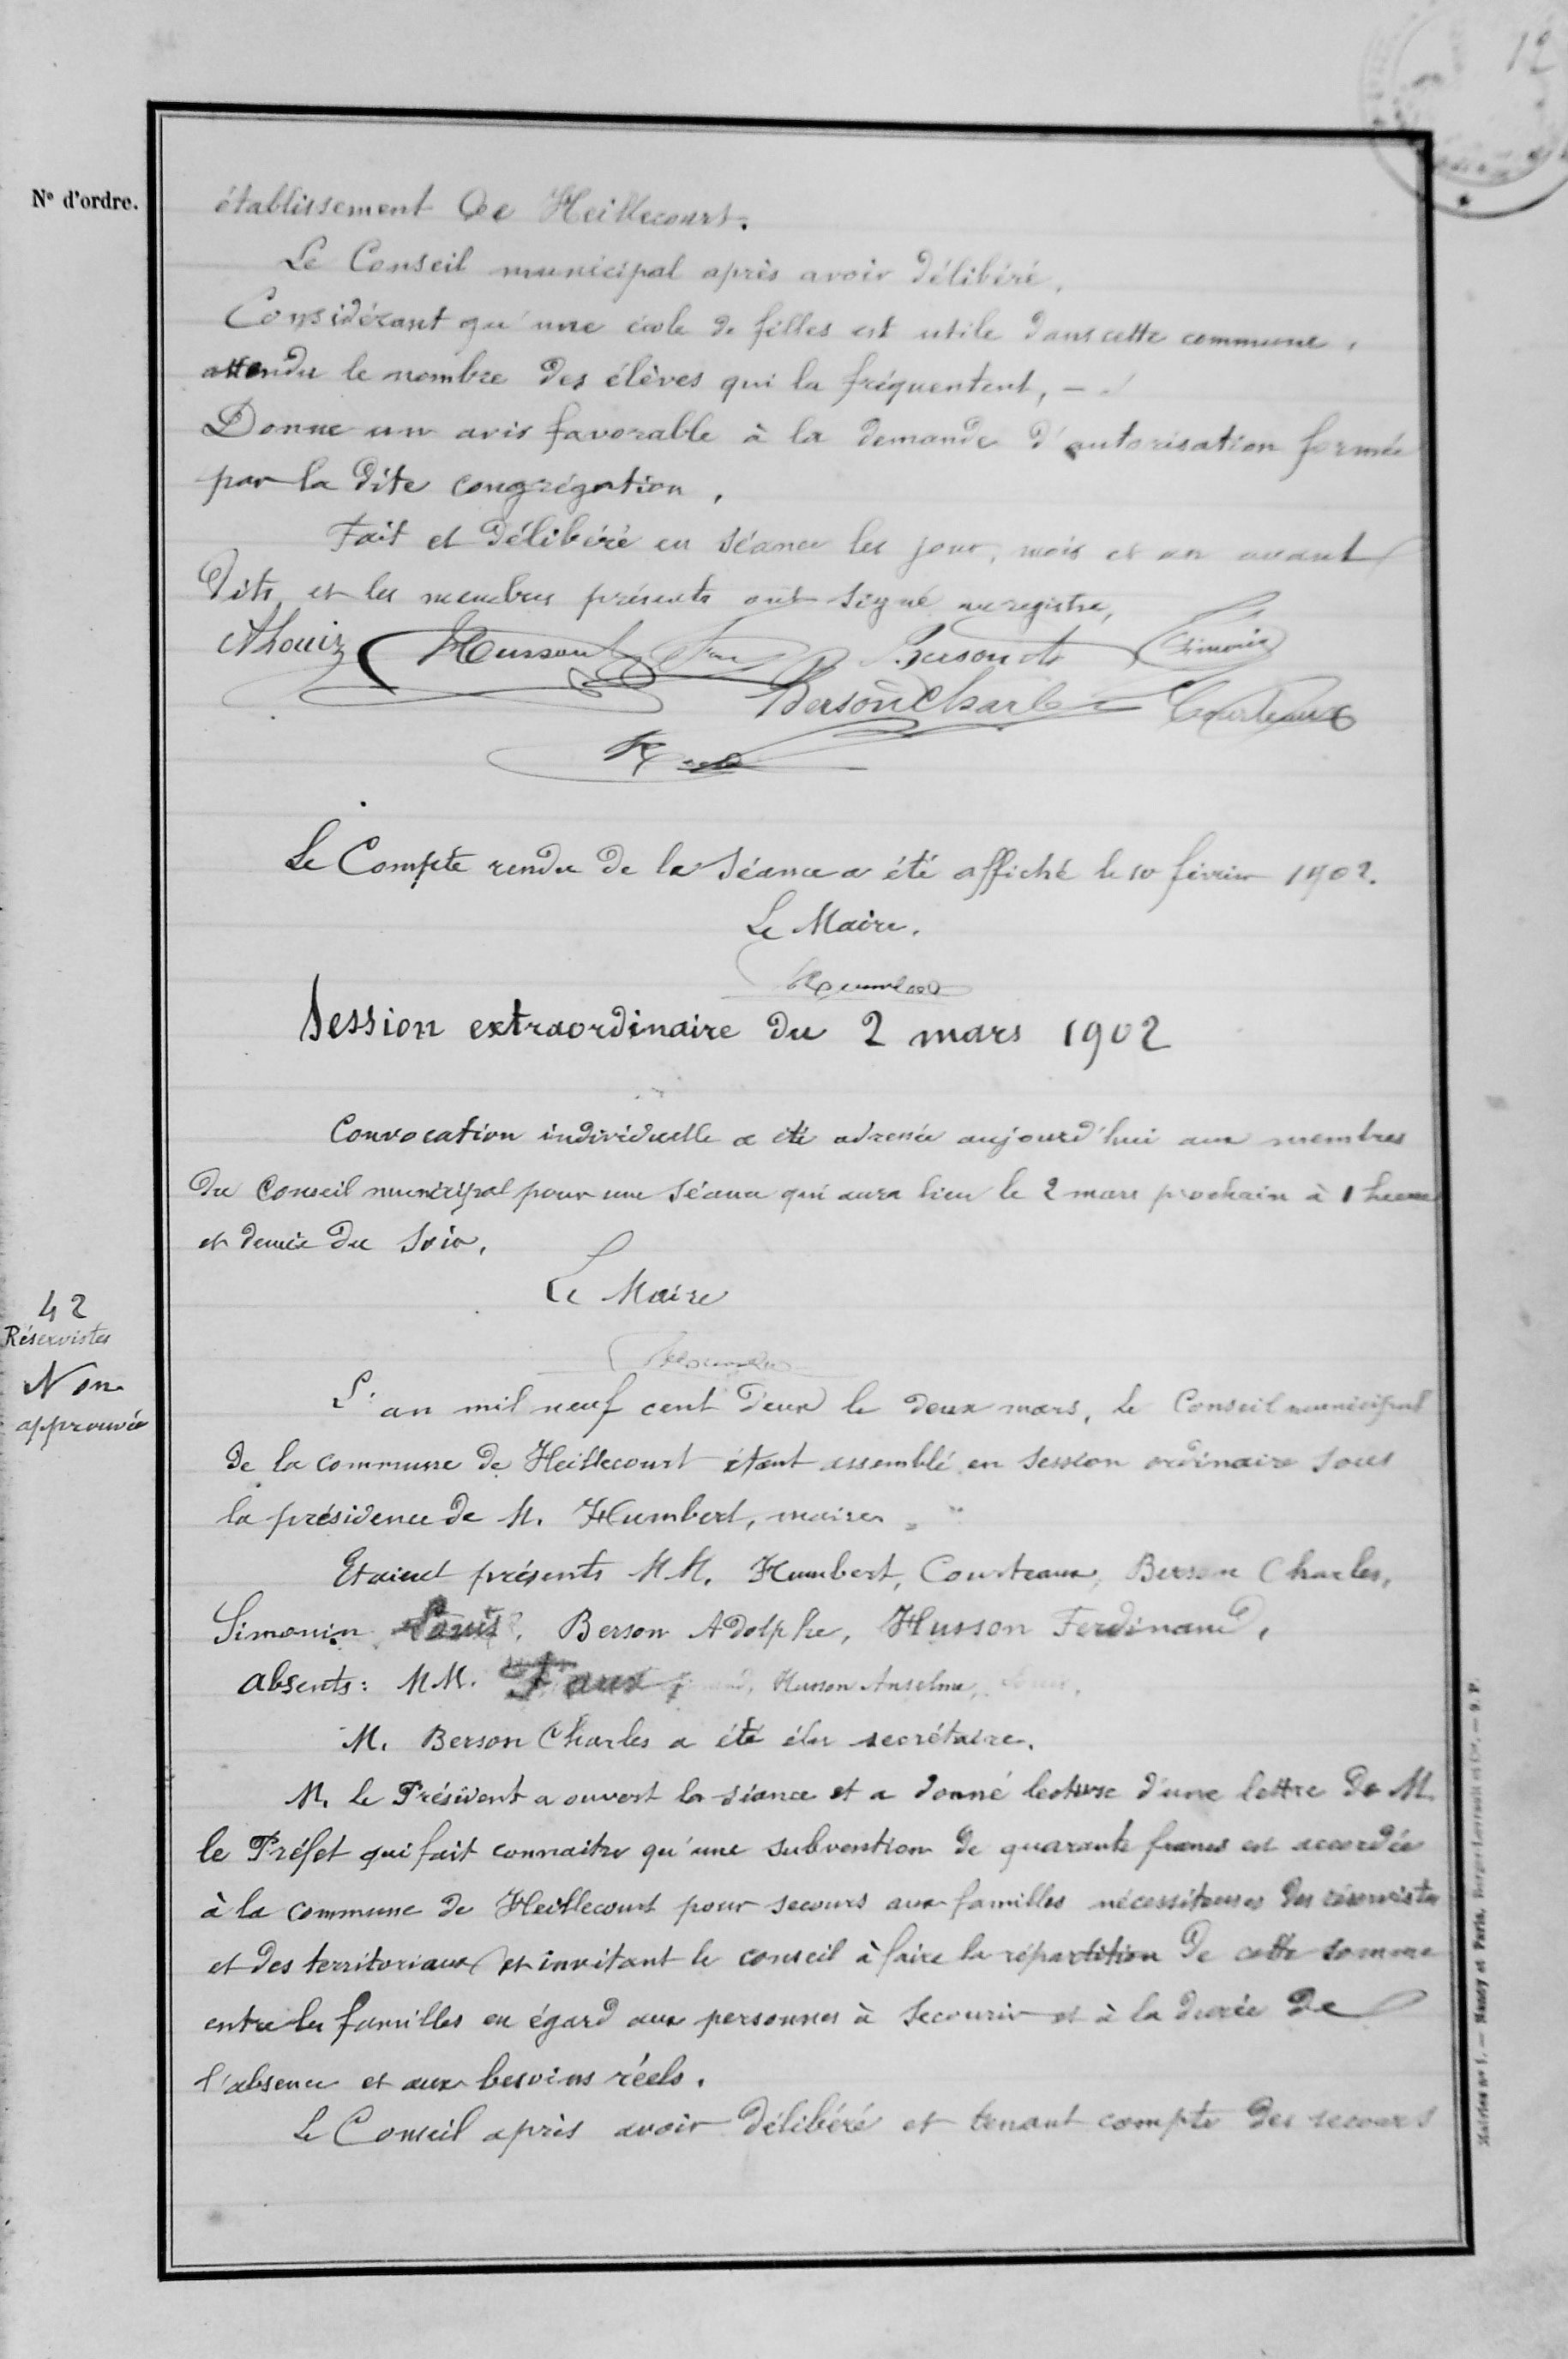 12
N° d'ordre.
établissement de Heillecourt.
Le Conseil municipal après avoir délibéré,
Considérant qu'une école de filles est utile dans cette commune,
attendu le nombre des élèves qui la fréquentent, -
Donne un avis favorable à la demande d'autorisation formée
par la dite congrégation.
Fait et délibéré en séance les jour, mois et an avant
dits et les membres présents ont signé au registre,
ALouis Husson Berson A Simonin
Berson Charles Courteaux
Le Compte rendu de la séance a été affiché le 10 février 1902.
Le Maire.
Humbert
Session extraordinaire du 2 mars 1902
Convocation individuelle a été adressée aujourd'hui aux membres
du Conseil municipal pour une séance qui aura lieu le 2 mars prochain à 1 heure
et demie du soir.
Le Maire
Humbert
42
Réservistes
Non
approuvée
L'an mil neuf cent deux le deux mars, le Conseil municipal
de la commune de Heillecourt étant assemblé en session ordinaire sous
la présidence de M. Humbert, maire
Etaient présents MM. Humbert, Courteaux, Berson Charles,
Simonin Louis, Berson Adolphe, Husson Ferdinand,
absents: MM. Faux, Husson Anselme,
M. Berson Charles a été élu secrétaire.
M. le Président a ouvert la séance et a donné lecture d'une lettre de M.
le Préfet qui fait connaitre qu'une subvention de quarante francs est accordée
à la commune de Heillecourt pour secours aux familles nécessiteuses des réservistes
et des territoriaux et invitant le conseil à faire la répartition de cette somme
entre les familles eu égard aux personnes à secourir et à la durée de
l'absence et aux besoins réels.
Le Conseil après avoir délibéré et tenant compte des secours
Mairies n° 1. — Nancy et Paris, Berger-Levrault et Cie. — 9. P.